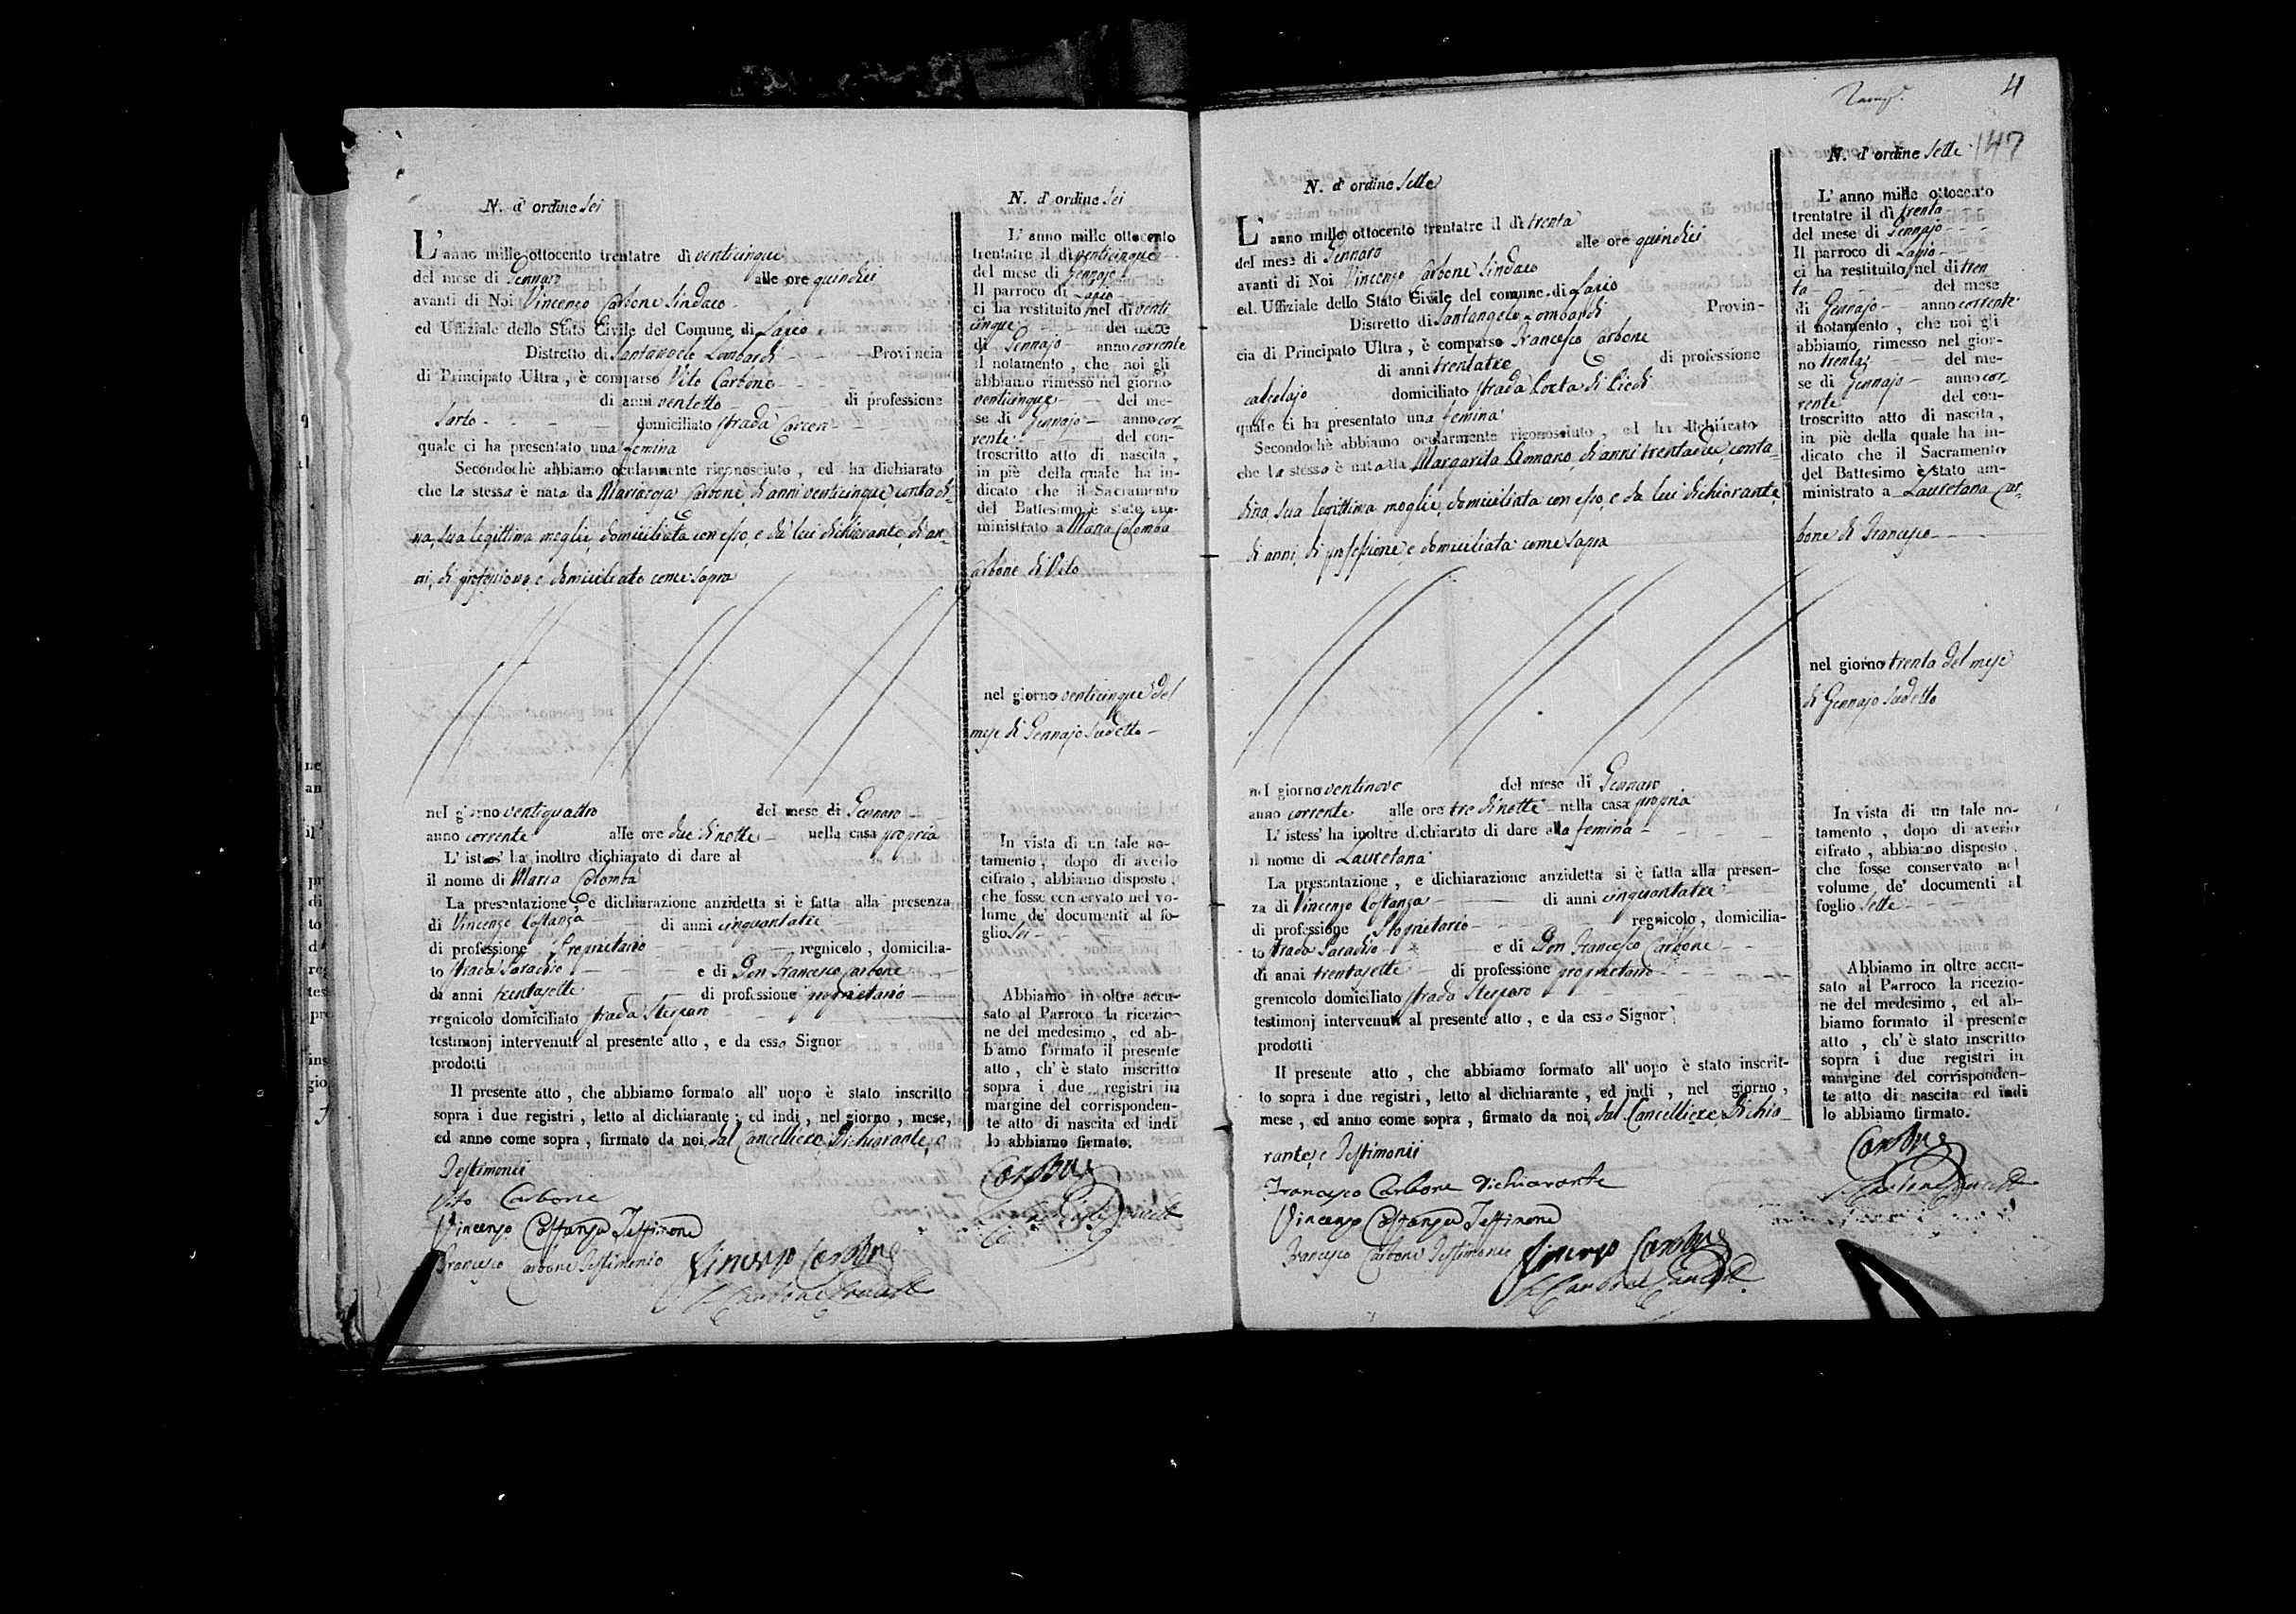 N. d' ordine Sei
L' anno mille ottocento trentatre di venticinque
del mese di Gennaro alle ore quindici
avanti di Noi Vincenzo Carbone Sindaco
ed Uffiziale dello Stato Civile del Comune di Lapio
Distretto di Santangelo Lombardi Provincia
di Principato Ultra, è comparso Vito Carbone
di anni ventotto di professione
Sarto domiciliato strada Carceri
quale ci ha presentato una femina
Secondochè abbiamo ocularmente riconosciuto, ed ha dichiarato
che la stessa è nata da Mariarosa Carbone di anni venticinque, contadi-
na, sua legittima moglie, domiciliata con esso, e da lui dichiarante, di an-
ni, di professione, e domiciliato come sopra
nel giorno ventiquattro del mese di Gennaro
anno corrente alle ore due di notte nella casa propria
L' istess' ha inoltre dichiarato di dare al
il nome di Maria Colomba
La presentazione, e dichiarazione anzidetta si è fatta alla presenza
di Vincenzo Costanza di anni cinquantatre
di professione Proprietario regnicolo, domicilia-
to strada Paradiso e di Don Francesco Carbone
di anni trentasette di professione proprietario
regnicolo domiciliato strada
testimonj intervenuti al presente atto, e da esso Signor
prodotti
Il presente atto, che abbiamo formato all' uopo è stato inscritto
sopra i due registri, letto al dichiarante; ed indi, nel giorno, mese,
ed anno come sopra, firmato da noi, dal Cancelliere, Dichiarante, e
Testimonii
Vito Carbone
Vincenzo Costanza Testimone
Francesco Carbone Testimonio Vincenzo Carbone
N. d' ordine Sei
L' anno mille ottocento
trentatre il di venticinque
del mese di Gennajo
Il parroco di Lapio
ci ha restituito nel di venti
cinque del mese
di Gennajo anno corrente
il notamento, che noi gli
abbiamo rimesso nel giorno
venticinque del me-
se di Gennajo anno cor-
rente del con-
troscritto atto di nascita,
in piè della quale ha in-
dicato che il Sacramento
del Battesimo è stato am-
ministrato a Maria Colomba
Carbone di Vito
nel giorno venticinque del
mese di Gennajo sudetto
In vista di un tale no-
tamento, dopo di averlo
cifrato, abbiamo disposto,
che fosse conservato nel vo-
lume de' documenti al fo-
glio Sei
Abbiamo in oltre accu-
sato al Parroco la ricezio-
ne del medesimo, ed ab-
biamo formato il presente
atto, ch' è stato inscritto
sopra i due registri in
margine del corrisponden-
te atto di nascita ed indi
lo abbiamo firmato.
Carbone
4
147
N. d' ordine Sette
L' anno mille ottocento trentatre il di trenta
del mese di Gennaro alle ore quindici
avanti di Noi Vincenzo Carbone Sindaco
ed Uffiziale dello Stato Civile del comune di Lapio
Distretto di Santangelo Lombardi Provin-
cia di Principato Ultra, è comparso Francesco Carbone
di anni trentatre di professione
calzolajo domiciliato strada
quale ci ha presentato una femina
Secondochè abbiamo ocularmente riconosciuto, ed ha dichiarato
che la stessa è nata da Margarita Romano, di anni trentadue, conta-
dina, sua legittima moglie, domiciliata con esso, e da lui dichiarante,
di anni, di professione, e domiciliata come sopra
nel giorno ventinove del mese di Gennaro
anno corrente alle ore tre di notte nella casa propria
L' istess' ha inoltre dichiarato di dare alla femina
il nome di Lauretana
La presentazione, e dichiarazione anzidetta si è fatta alla presen-
za di Vincenzo Costanza di anni cinquantatre
di professione Proprietario regnicolo, domicilia-
to strada Paradiso e di Don Francesco Carbone
di anni trentasette di professione proprietario
gregnicolo domiciliato strada
testimonj intervenuti al presente atto, e da esso Signor
prodotti
Il presente atto, che abbiamo formato all' uopo è stato inscrit-
to sopra i due registri, letto al dichiarante, ed indi, nel giorno,
mese, ed anno come sopra, firmato da noi, dal Cancelliere, Dichia-
rante, e Testimonii
Francesco Carbone dichiarante
Vincenzo Costanza Testimone
Francesco Carbone Testimonio Vincenzo Carbone
N. d' ordine Sette
L' anno mille ottocento
trentatre il di trenta
del mese di Gennajo
Il parroco di Lapio
ci ha restituito nel di tren
ta del mese
di Gennajo anno corrente
il notamento, che noi gli
abbiamo rimesso nel gior-
no trenta del me-
se di Gennajo anno cor-
rente del con-
troscritto atto di nascita,
in piè della quale ha in-
dicato che il Sacramento
del Battesimo è stato am-
ministrato a Lauretana Car-
bone di Francesco
nel giorno trenta del mese
di Gennajo sudetto
In vista di un tale no-
tamento, dopo di averlo
cifrato, abbiamo disposto,
che fosse conservato nel
volume de' documenti al
foglio Sette
Abbiamo in oltre accu-
sato al Parroco la ricezio-
ne del medesimo, ed ab-
biamo formato il presente
atto, ch' è stato inscritto
sopra i due registri in
margine del corrisponden-
te atto di nascita ed indi
lo abbiamo firmato.
Carbone